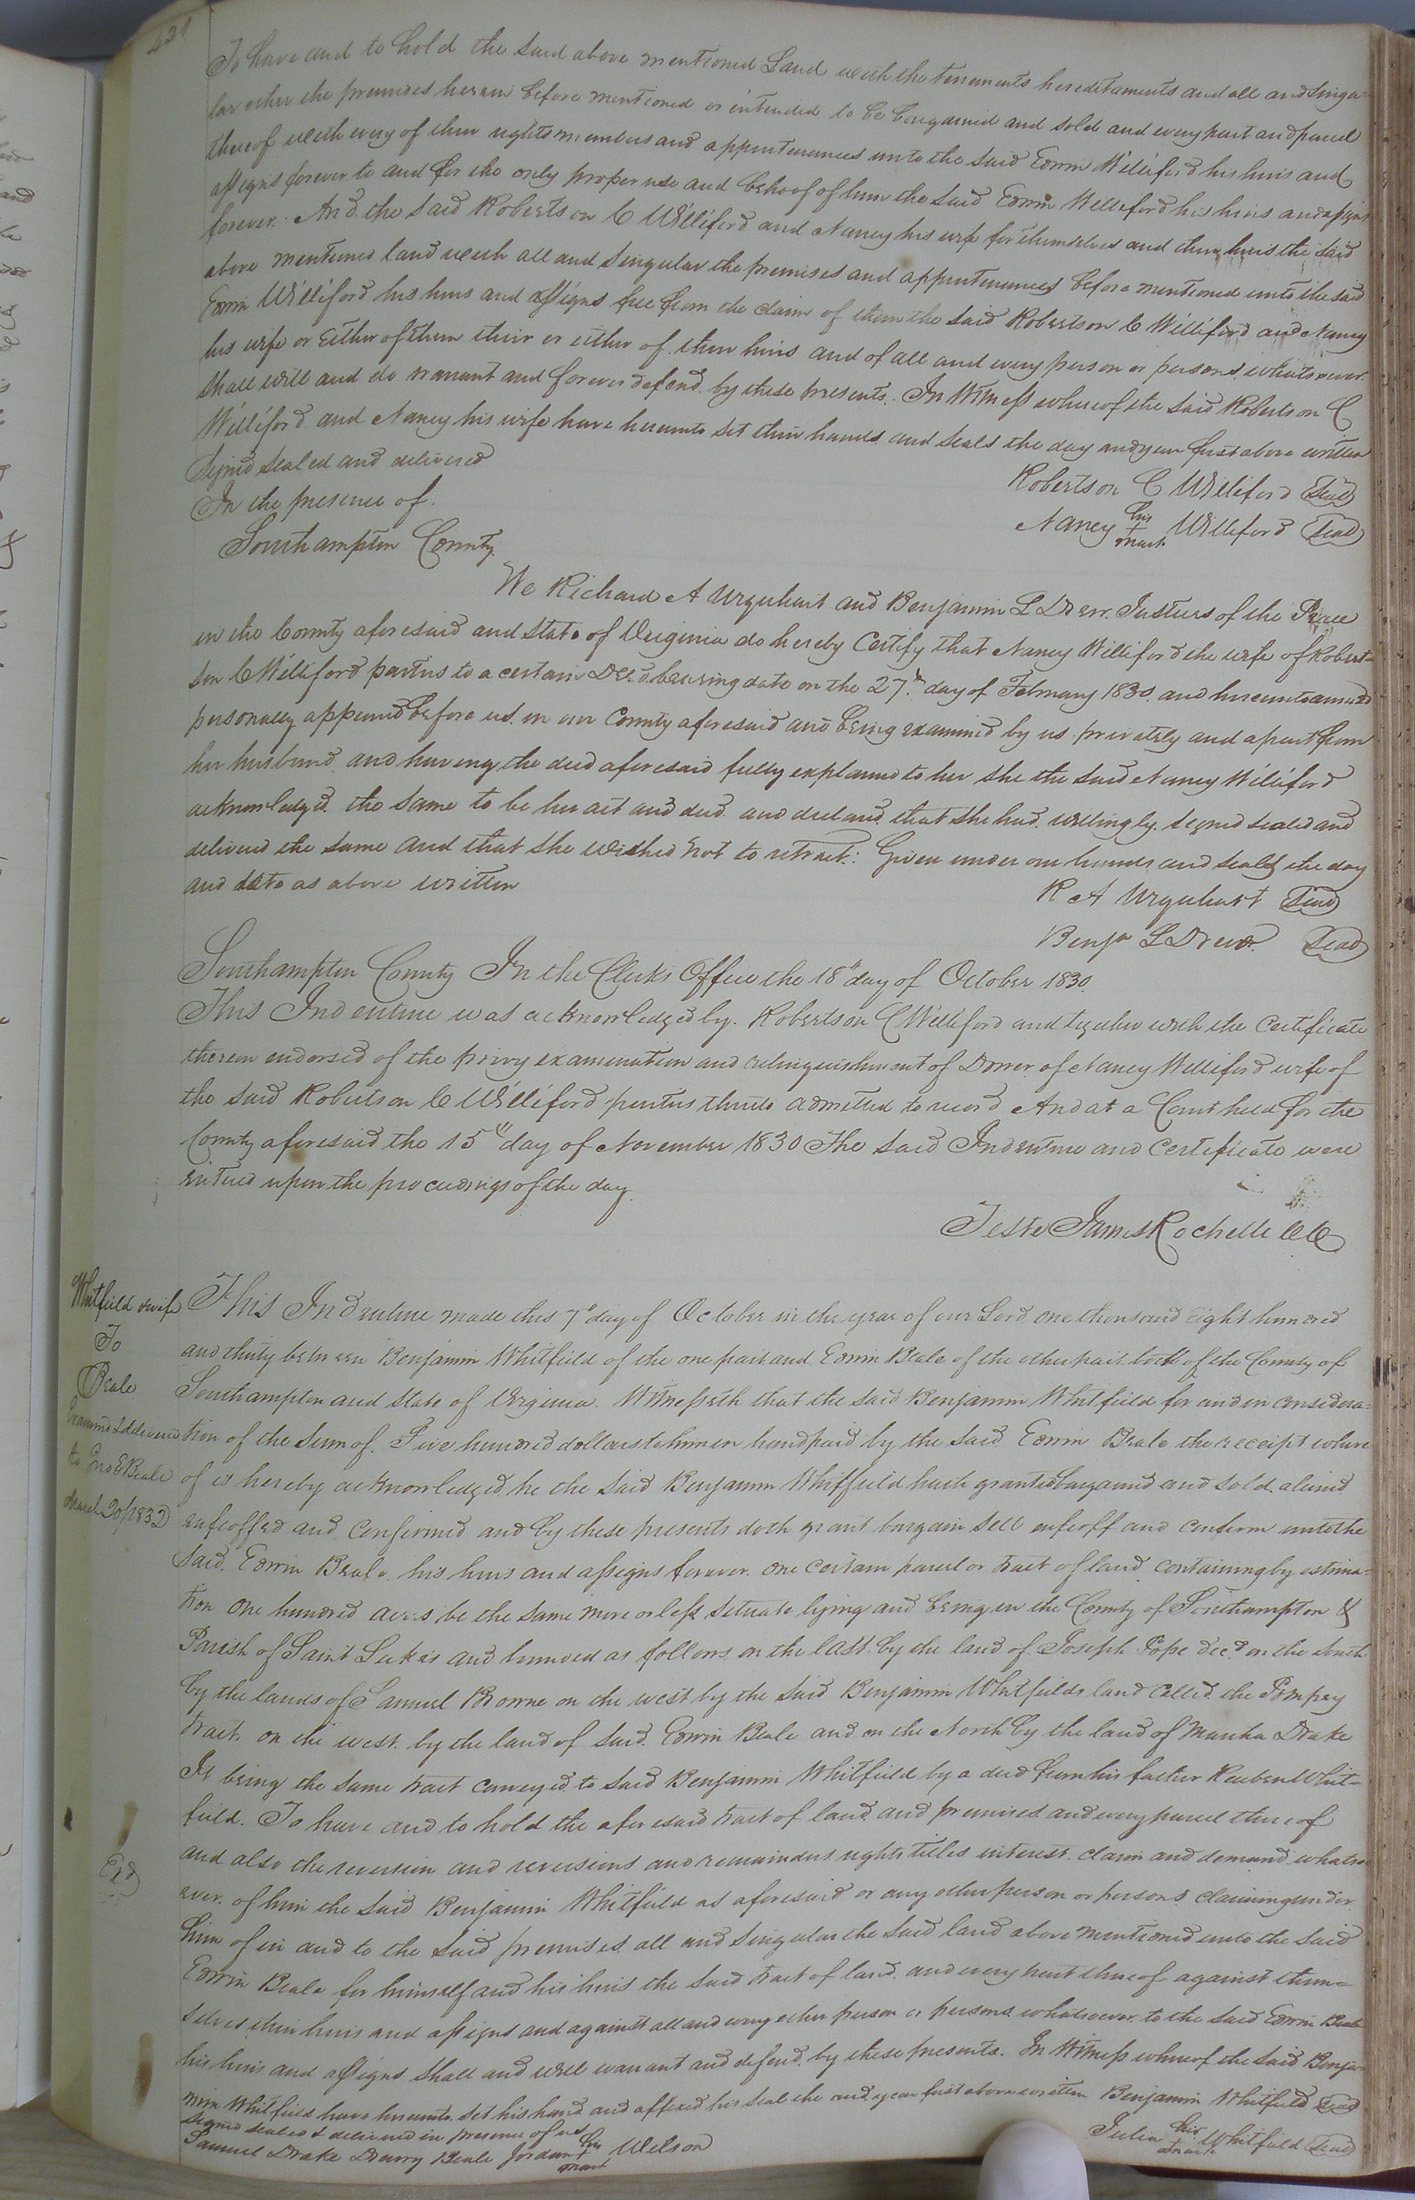 421
To have and to hold the said above mentioned Land with the tenements hereditaments and all and Singu=
lar other the premises herein before mentioned or intended to be bargained and sold and every part and parcel
thereof with every of their rights members and appurtenances unto the said Edwin Williford his heirs and
assigns forever to and for the only proper use and behoof of him the said Edwin Williford his heirs and assigns
forever. And the said Robertson C Williford and Nancy his wife for themselves and their heirs the said
above mentioned land with all and Singular the premises and appurtenances before mentioned unto the said
Edwin Williford his heirs and assigns free from the claim of them the said Robertson C Williford and Nancy
his wife or Either of them their or either of their heirs and of all and every person or persons whatsoever
Shall will and do warrant and forever defend by these presents. In Witness whereof the said Robertson C
Williford and Nancy his wife have hereunto set their hands and seals the day and year first above written
Signed sealed and delivered
In the presence of.
Robertson C Williford Seal
Nancy her mark Williford Seal
Southampton County.
We Richard A Urquhart and Benjamin L Drew Justices of the Peace
in the County aforesaid and State of Virginia do hereby Certify that Nancy Williford the wife of Robert=
son C Williford parties to a certain Deed bearing date on the 27th day of February 1830 and hereunto annexed
personally appeared before us in our County aforesaid and being examined by us privately and apart from
her husband and having the deed aforesaid fully explained to her she the said Nancy Williford
acknowledged the same to be her act and deed and declared that she had willingly signed sealed and
delivered the same and that she wished not to retract: Given under our hands and seals the day
and date as above written
R A Urquhart Seal
Benja L Drew Seal
Southampton County In the Clerks Office the 18th day of October 1830
This Indenture was acknowledged by Robertson C Williford and together with the Certificate
thereon endorsed of the privy examination and relinquishment of Dower of Nancy Williford wife of
the said Robertson C Williford parties thereto admitted to record And at a Court held for the
County aforesaid the 15th day of November 1830 The said Indenture and Certificate were
Entered upon the proceedings of the day.
Teste James Rochelle CC
Whitfield & wife
To
Beale
Examined & delivered
to Jno E Beale
March 20/1832
This Indenture made this 7th day of October in the year of our Lord one thousand Eight hundred
and thirty between Benjamin Whitfield of the one part and Edwin Beale of the other part both of the County of
Southampton and State of Virginia. Witnesseth that the said Benjamin Whitfield for and in considera=
tion of the Sum of Five hundred dollars to him in hand paid by the said Edwin Beale the receipt where
of is hereby acknowledged he the said Benjamin Whitfield hath granted bargained and sold aliened
enfeoffed and Confirmed and by these presents doth grant bargain sell enfeoff and confirm unto the
said Edwin Beale his heirs and assigns forever one certain parcel or tract of land containing by estima=
tion One hundred acres be the same more or less Situate lying and being in the County of Southampton &
Parish of Saint Lukes and bounded as follows on the East by the land of Joseph Pope decd on the South
by the lands of Samuel Browne on the west by the said Benjamin Whitfields land Called the Pompey
tract on the west by the land of said Edwin Beale and on the North by the land of Martha Drake
It being the same tract conveyed to said Benjamin Whitfield by a deed from his father Reuben Whit=
field. To have and to hold the aforesaid tract of land and premises and every parcel thereof
and also the reversion and reversions and remainders rights titles interest claim and demand whatso
ever of him the said Benjamin Whitfield as aforesaid or any other person or persons claiming under
him of in and to the said premises all and Singular the said land above mentioned unto the said
Edwin Beale for himself and his heirs the said tract of land and every part thereof against them=
selves their heirs and assigns and against all and every other person or persons whatsoever to the said Edwin Beale
his heirs and assigns shall and will warrant and defend by these presents. In Witness whereof the said Benja
min Whitfield have hereunto set his hand and affixed his seal the and year first above written Benjamin Whitfield Seal
Signed sealed & delivered in presence of us
Julia her mark Whitfield Seal
Samuel Drake Drewry Beale Jordan his mark Wilson